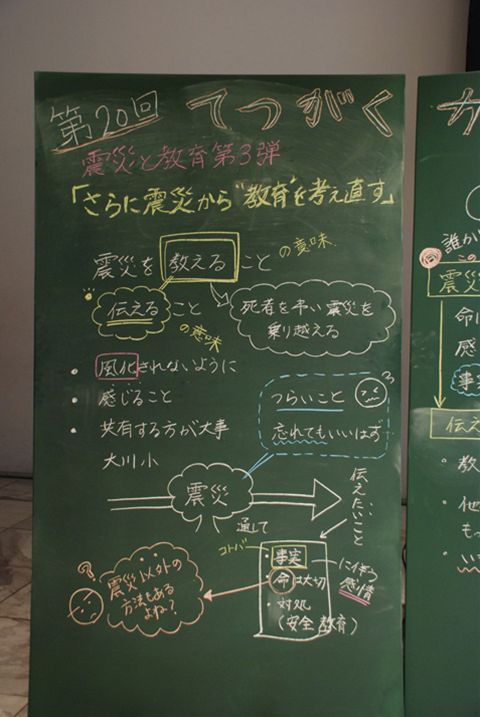 第20回 てつがく カ
震災と教育第3弾
「さらに震災から"教育"を考え直す」
震災を 教える こと の意味
伝える こと の意味
死者を弔い震災を
乗り越える
・ 風化されないように
・ 感じること
・ 共有する方が大事
大川小
つらいこと
忘れてもいいはず
震災
通して
伝えたいこと
コトバ
・事実
・命は大切
・対処
(安全教育)
に伴う
感情
?
震災以外の
方法もある
よね?
誰か
この
震災
命に
感
事実
伝え
・教
・他
もっ
・い